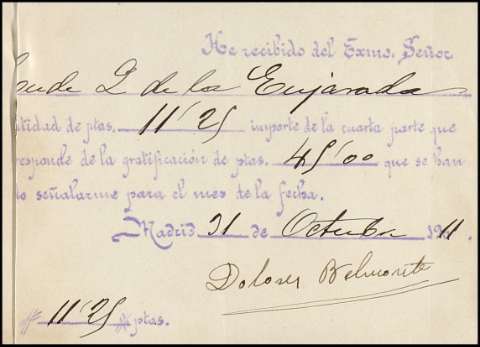 He recibido del Exmo. Señor
onde D de la Enjarada
ntidad de ptas. 11'25 importe de la cuarta parte que
responde de la gratificación de ptas. 45'00 que se han
do señalarme para el mes de la fecha.
Madrid 31 de Octubre 1911.
Dolores Belmonte
11'25 ptas.